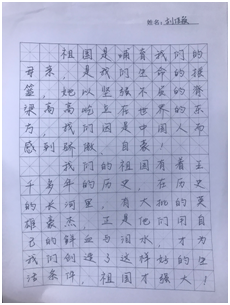 姓名:
祖国是哺育我们的
母亲,是我们生命的摇
篮,她以坚强不屈的脊
梁高高屹立在世界的东
方,我们因是中国人而
感到骄傲、自豪!
我们的祖国有着五
千多年的历史,在历史
的长河里,有大批的英
雄豪杰,正是他们用自
己的鲜血与泪水,才为
我们创造了这样好的生
活条件,祖国才强大!